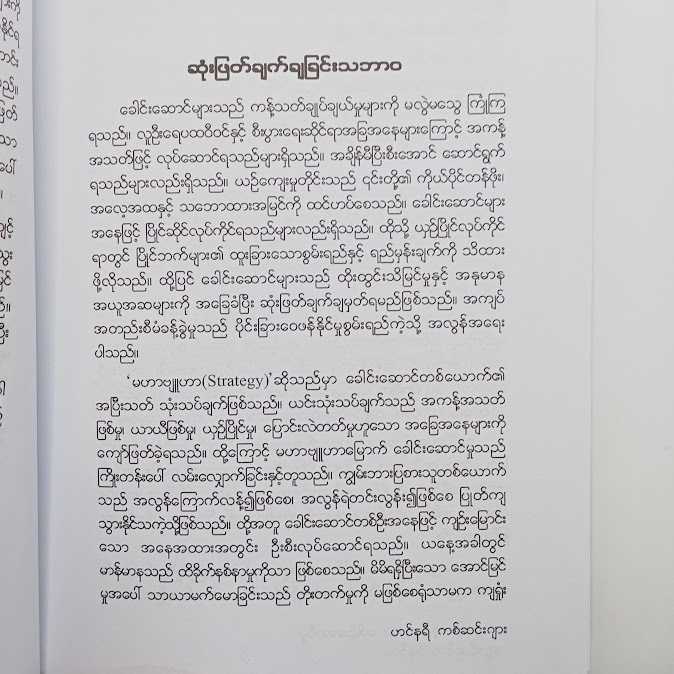 ဆုံးဖြတ်ချက်ချခြင်းသဘာဝ
ခေါင်းဆောင်များသည် ကန့်သတ်ချုပ်ချယ်မှုများကို မလွဲမသွေ ကြုံကြ
ရသည်။ လူဦးရေပထဝီဝင်နှင့် စီးပွားရေးဆိုင်ရာအခြေအနေများကြောင့် အကန့်
အသတ်ဖြင့် လုပ်ဆောင်ရသည်များရှိသည်။ အချိန်မီပြီးစီးအောင် ဆောင်ရွက်
ရသည်များလည်းရှိသည်။ ယဉ်ကျေးမှုတိုင်းသည် ၎င်းတို့၏ ကိုယ်ပိုင်တန်ဖိုး၊
အလေ့အထနှင့် သဘောထားအမြင်ကို ထင်ဟပ်စေသည်။ ခေါင်းဆောင်များ
အနေဖြင့် ပြိုင်ဆိုင်လုပ်ကိုင်ရသည်များလည်းရှိသည်။ ထိုသို့ ယှဉ်ပြိုင်လုပ်ကိုင်
ရာတွင် ပြိုင်ဘက်များ၏ ထူးခြားသောစွမ်းရည်နှင့် ရည်မှန်းချက်ကို သိထား
ဖို့လိုသည်။ ထို့ပြင် ခေါင်းဆောင်များသည် ထိုးထွင်းသိမြင်မှုနှင့် အနုမာန
အယူအဆများကို အခြေခံပြီး ဆုံးဖြတ်ချက်ချမှတ်ရမည်ဖြစ်သည်။ အကျပ်
အတည်းစီမံခန့်ခွဲမှုသည် ပိုင်းခြားဝေဖန်နိုင်မှုစွမ်းရည်ကဲ့သို့ အလွန်အရေး
ပါသည်။
‘မဟာဗျူဟာ(Strategy)’ဆိုသည်မှာ ခေါင်းဆောင်တစ်ယောက်၏
အပြီးသတ် သုံးသပ်ချက်ဖြစ်သည်။ ယင်းသုံးသပ်ချက်သည် အကန့်အသတ်
ဖြစ်မှု၊ ယာယီဖြစ်မှု၊ ယှဉ်ပြိုင်မှု၊ ပြောင်းလဲတတ်မှုဟူသော အခြေအနေများကို
ကျော်ဖြတ်ခဲ့ရသည်။ ထို့ကြောင့် မဟာဗျူဟာမြောက် ခေါင်းဆောင်မှုသည်
ကြိုးတန်းပေါ် လမ်းလျှောက်ခြင်းနှင့်တူသည်။ ကျွမ်းဘားပြစားသူတစ်ယောက်
သည် အလွန်ကြောက်လန့်၍ဖြစ်စေ၊ အလွန်ရဲတင်းလွန်း၍ဖြစ်စေ ပြုတ်ကျ
သွားနိုင်သကဲ့သို့ဖြစ်သည်။ ထို့အတူ ခေါင်းဆောင်တစ်ဦးအနေဖြင့် ကျဉ်းမြောင်း
သော အနေအထားအတွင်း ဦးစီးလုပ်ဆောင်ရသည်။ ယနေ့အခါတွင်
မာန်မာနသည် ထိခိုက်နစ်နာမှုကိုသာ ဖြစ်စေသည်။ မိမိရရှိပြီးသော အောင်မြင်
မှုအပေါ် သာယာမက်မောခြင်းသည် တိုးတက်မှုကို မဖြစ်စေရုံသာမက ကျရှုံး
ဟင်နရီ ကစ်ဆင်းဂျား